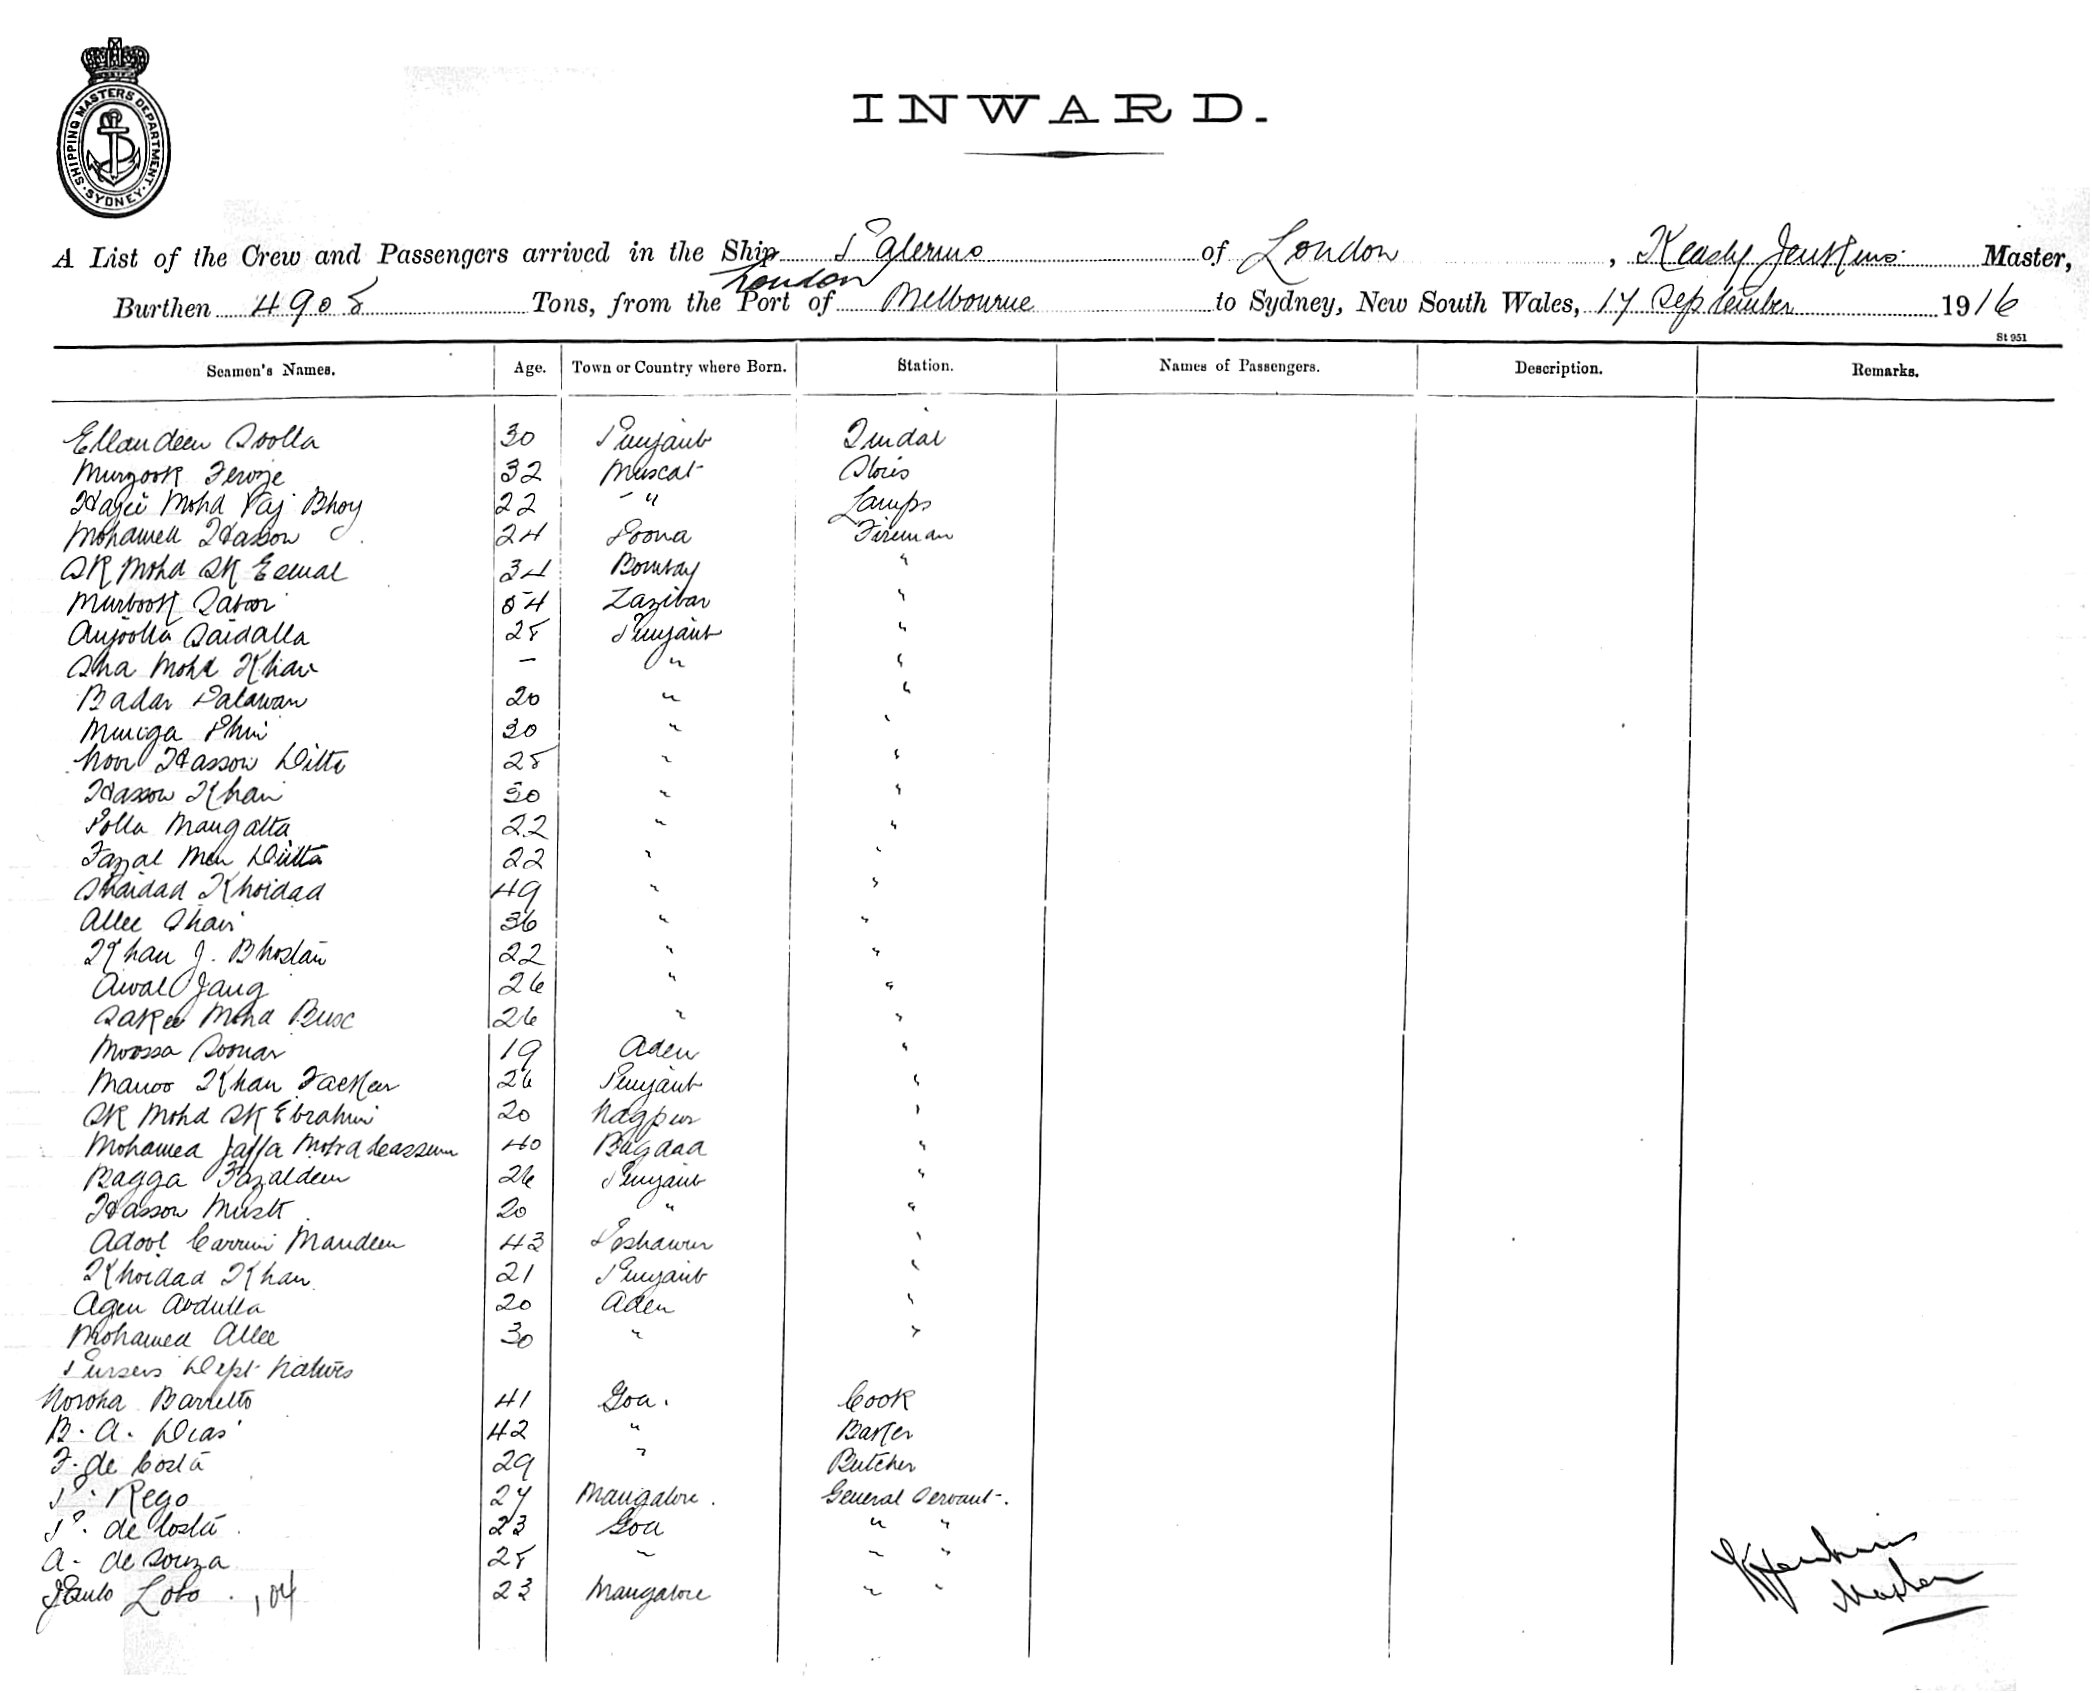 SHIPPING MASTERS DEPARTMENT · SYDNEY ·
INWARD.
A List of the Crew and Passengers arrived in the Ship Palermo of London, Keady Jenkins Master,
London
Burthen 4908 Tons, from the Port of Melbourne to Sydney, New South Wales, 17 September 1916
St 951
Seamen's Names. Age. Town or Country where Born. Station. Names of Passengers. Description. Remarks.
Ellaudeen Soolla 30 Punjaub Tindal
Murzook Feroze 32 Muscat Stores
Hajee Mohd Taj Bhoy 22 " Lamps
Mohamed Hasson 24 Poona Fireman
SK Mohd SK Esmal 34 Bombay "
Murbook Saboor 54 Zazibar "
Anjoolla Saidalla 28 Punjaub "
Sha Mohd Khan - " "
Badar Palawan 20 " "
30 " "
Noor Hasson Ditta 28 " "
Hasson Khan 30 " "
Polla Mangatta 22 " "
Fazal Ditta 22 " "
Shaidad Khoidad 49 " "
Allee Shair 36 " "
Khan J. Bhostan 22 " "
Awal Jang 26 " "
Sakee Mohd Bux 26 " "
Moossa Soomar 19 Aden "
Manoo Khan Fackeer 26 Punjaub "
SK Mohd SK Ebrahim 20 Nagpur "
Mohamed Jaffa Mohd Cassum 40 Bagdad "
Bagga Fazaldeen 26 Punjaub "
Hasson Mustt 20 " "
Adool Carrim Mandeen 43 Peshawur "
Khoidad Khan 21 Punjaub "
Agen Abdulla 20 Aden "
Mohamed Allee 30 " "
Pursers Dept Natives
Noroha Barretto 41 Goa. Cook
B. A. Dias 42 " Baker
F. de Costa 29 " Butcher
P. Rego 27 Mangalore. General Servant.
P. de Costa 23 Goa " "
A. de Souza 28 " " "
Paulo Lobo. 104 23 Mangalore " "
K Jenkins
Master